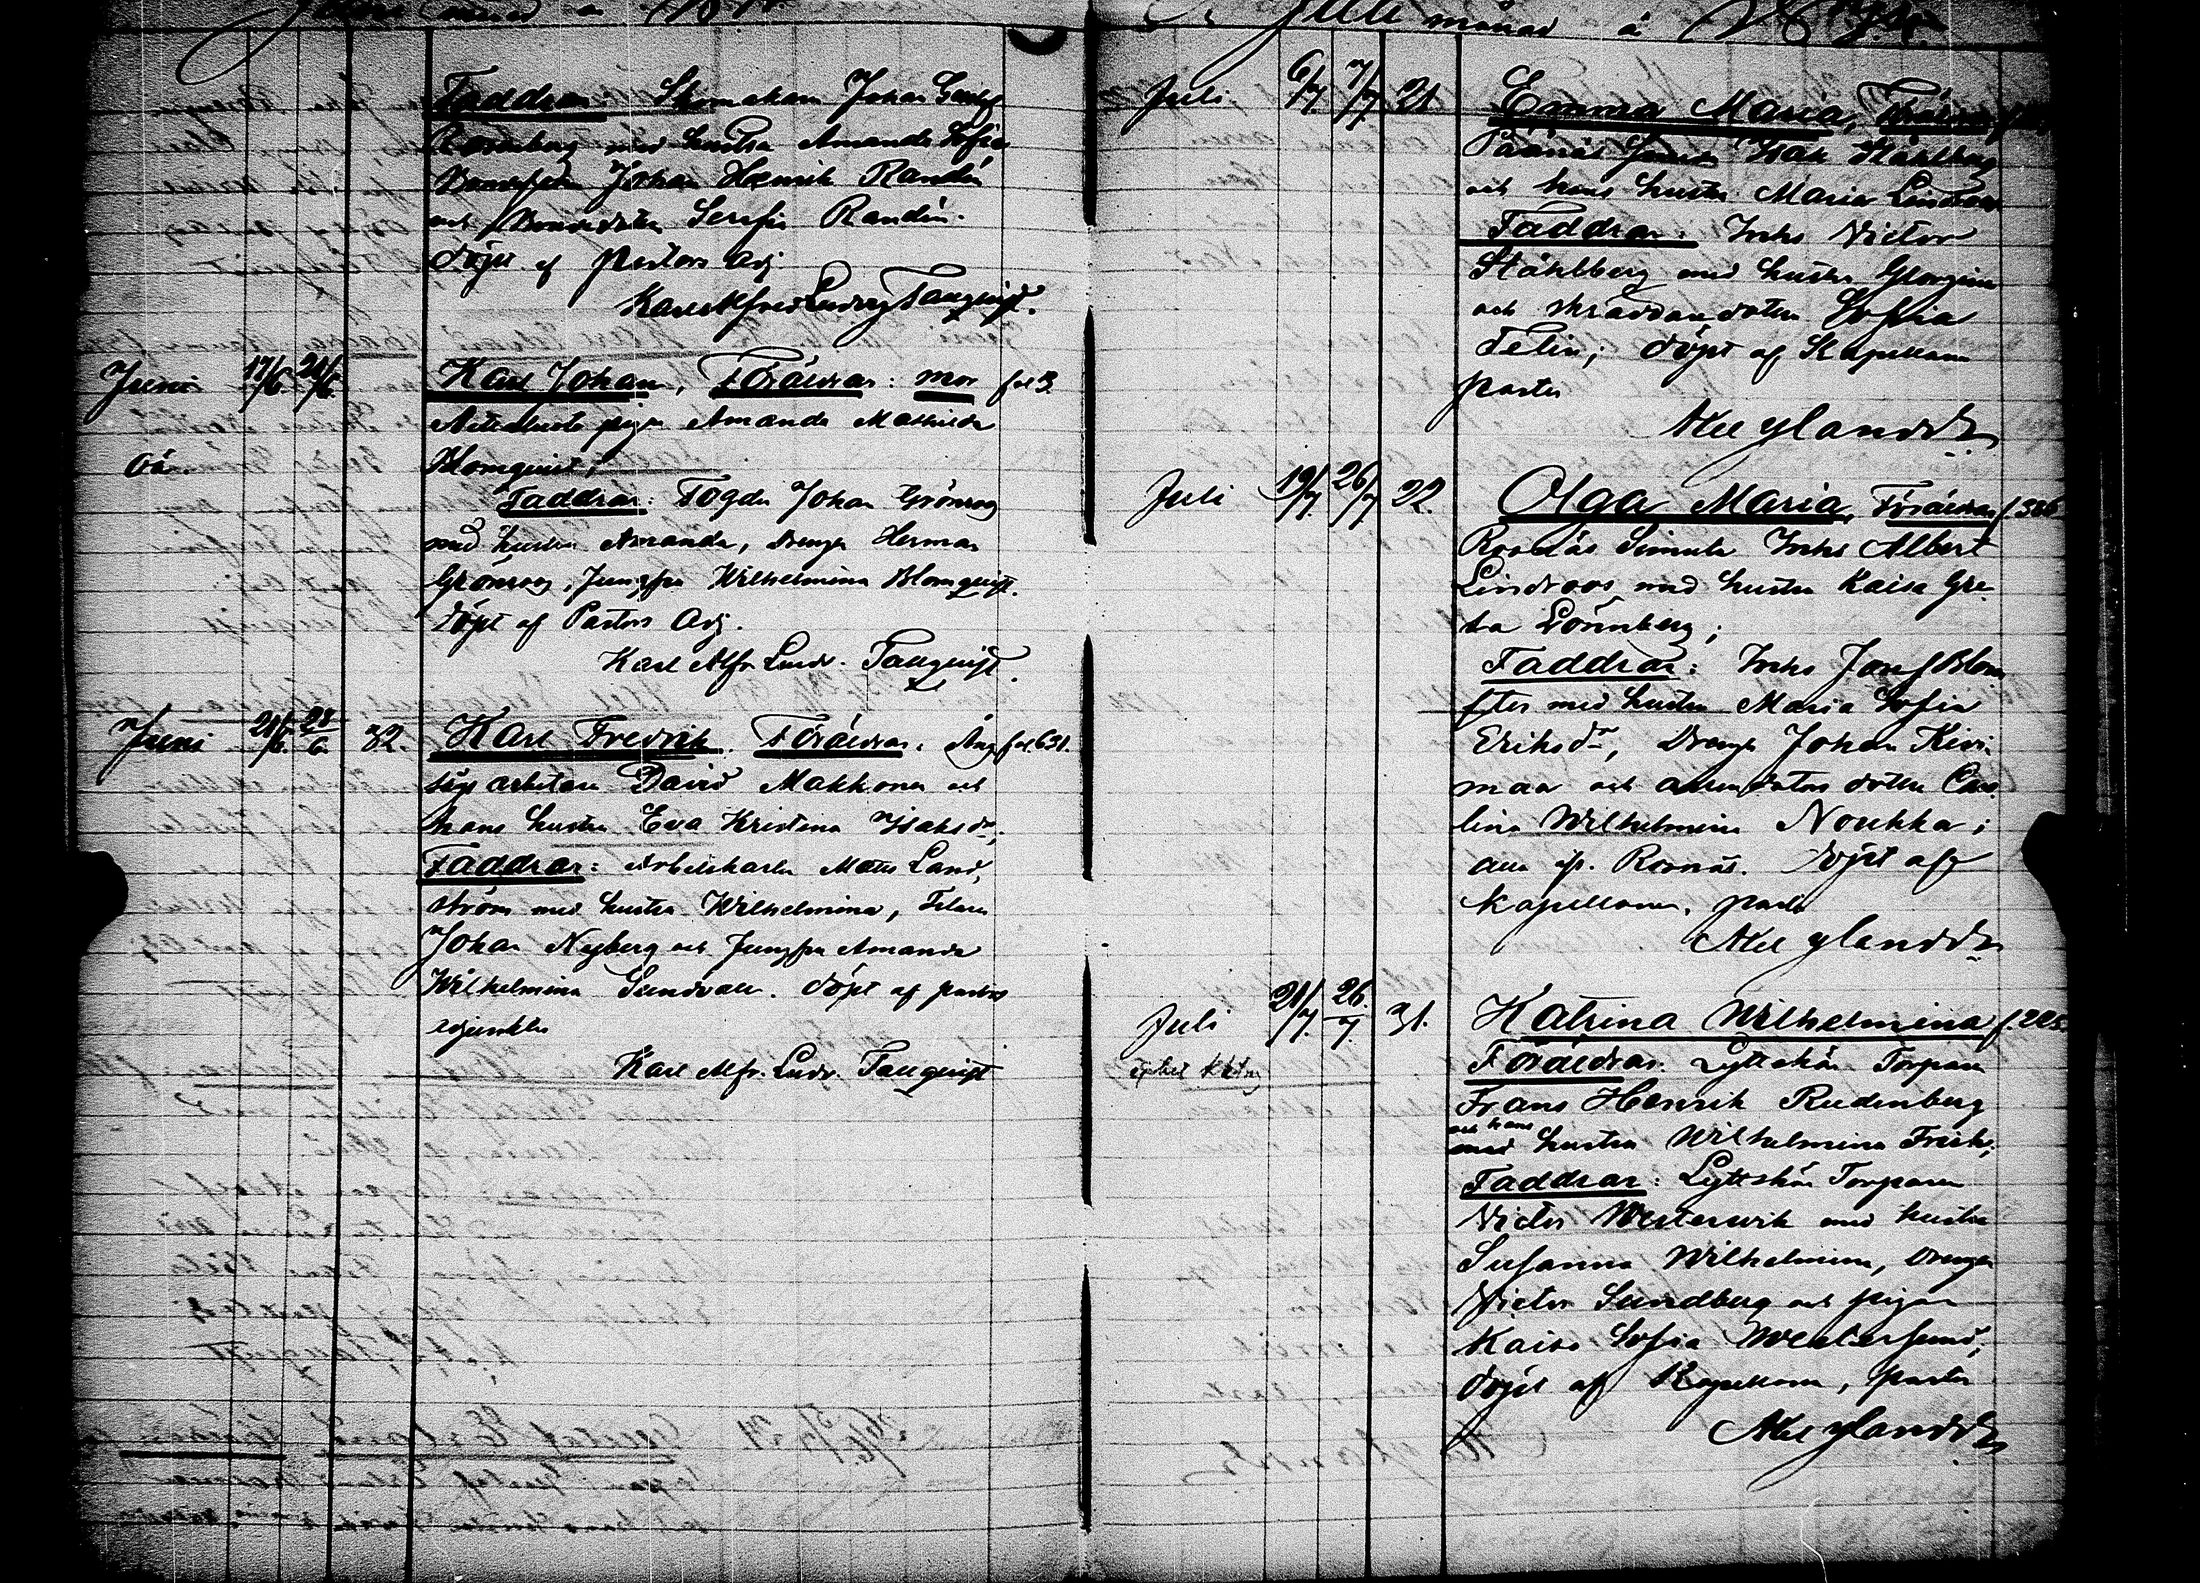 Juni månad
Faddrar: Skomakare Johan Gustaf
Rosenberg med hustru Amanda Sofia
Bondeson Johan Henrik Randén
och Bondedotter Serafia Randén.
döpt af Pastors Adj.
Karl Alfred Ludvig Tanquist.
Juni 17/6. 21/6. Karl Johan, Föräldrar: mor fol 3.
pigan Amanda Mathilda
Oä.
Blomquist;
Faddrar: Fogden Johan Grönroos
med hustru Amanda, Drengen Herman
Grönroos, Jungfru Wilhelmina Blomquist.
döpt af Pastors Adj.
Karl Alfr Ludv. Tanquist.
Juni 21/6. 28/6. 32. Karl Fredrik. Föräldrar: Ång fol. 631.
sågs arbetare David Makkonen och
hans hustru Eva Kristina Isaksdr;
Faddrar: Arbetskarlen Matts Land,
ström med hustru Wilhelmina, Filare
Johan Nyberg och Jungfru Amanda
Wilhelmina Sundvall. döpt af pastors
adjunkten
Karl Alfr. Ludv. Tanquist
Juli månad å
Juli 6/7. 7/7. 21. Emma Maria, Föräldrar
Isak Ståhlberg
och hans hustru Maria Lindroos
Faddrar: Inhs Victor
Ståhlberg med hustru Georgina
och skräddaredotter Sofia
Felin; döpt af Kapellanen
pastor
Axel Ylander
Juli 19/7. 26/7. 22. Olga Maria, Föräldrar f. 386
Roonäs Simula Inhs Albert
Lindroos med hustru Kaisa Gre-
ta Lönnberg;
Faddrar: Inhs Josef Blom
ster med hustru Maria Sofia
Eriksdr, Drengen Johan Kivi-
maa och arrendators dotter Caro-
lina Wilhelmina Noukka;
alla fr. Roonäs. döpt af
kapellanen, pastor
Axel Ylander
Juli 21/7. 26/7. 31. Katrina Wilhelmina f. 225
Föräldrar: Lyttskär Torparen
Frans Henrik Rudenberg
och hans
med hustru Wilhelmina Frisk;
Faddrar: Lyttskär Torparen
Victor Westervik med hustru
Susanna Wilhelmina, Drengen
Victor Sundberg och pigan
Kaisa Sofia Westersund,
döpt af Kapellanen, pastor
Axel Ylander